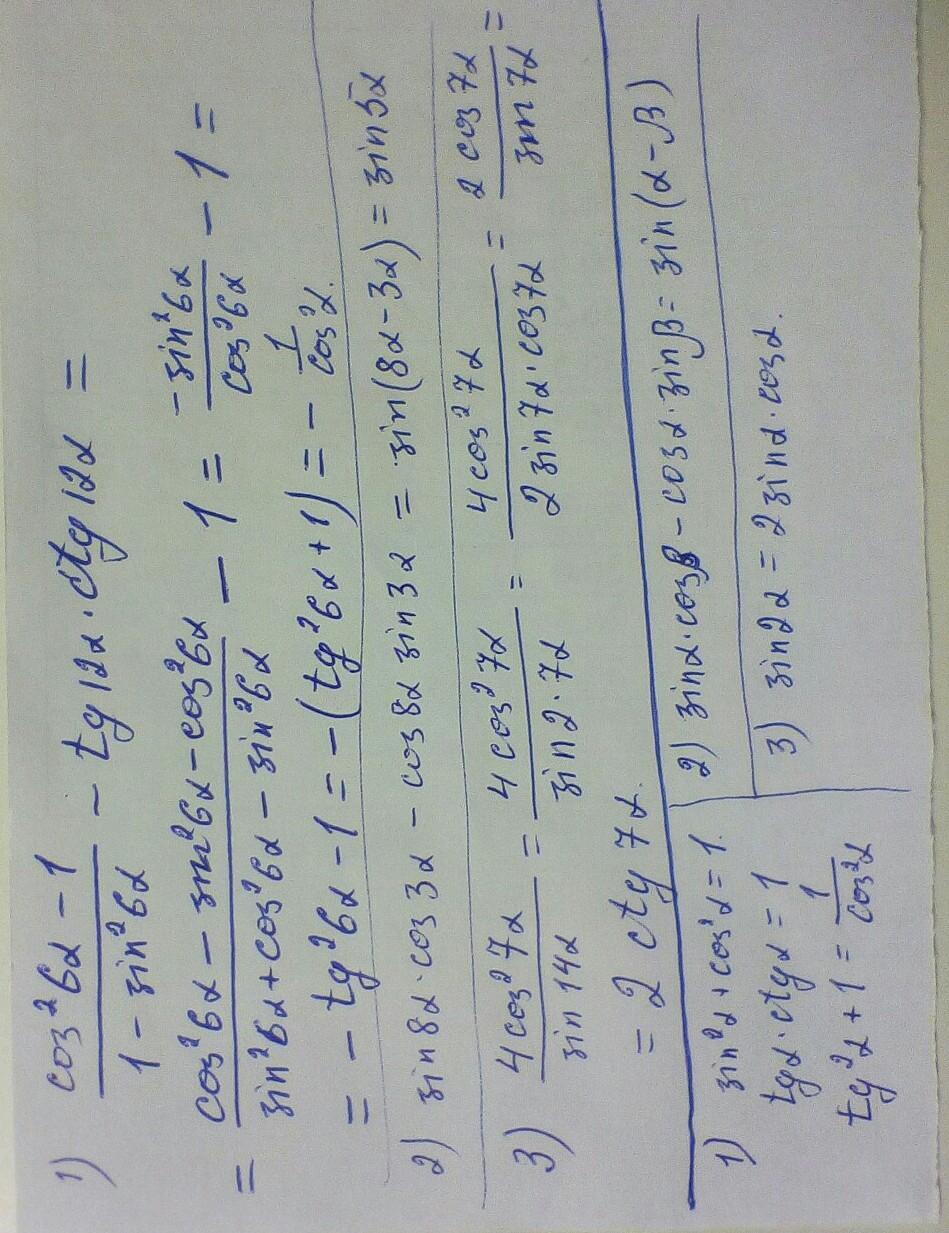 1) (cos²6α − 1)/(1 − sin²6α) − tg12α · ctg12α =
= (cos²6α − sin²6α − cos²6α)/(sin²6α + cos²6α − sin²6α) − 1 = −sin²6α/cos²6α − 1 =
= −tg²6α − 1 = −(tg²6α + 1) = − 1/cos²α.
2) sin8α · cos3α − cos8α sin3α = sin(8α − 3α) = sin5α
3) 4cos²7α/sin14α = 4cos²7α/sin2·7α = 4cos²7α/2sin7α·cos7α = 2cos7α/sin7α =
= 2ctg7α.
1) sin²α + cos²α = 1.
tgα · ctgα = 1
tg²α + 1 = 1/cos²α
2) sinα · cosβ − cosα · sinβ = sin(α − β)
3) sin2α = 2sinα · cosα.